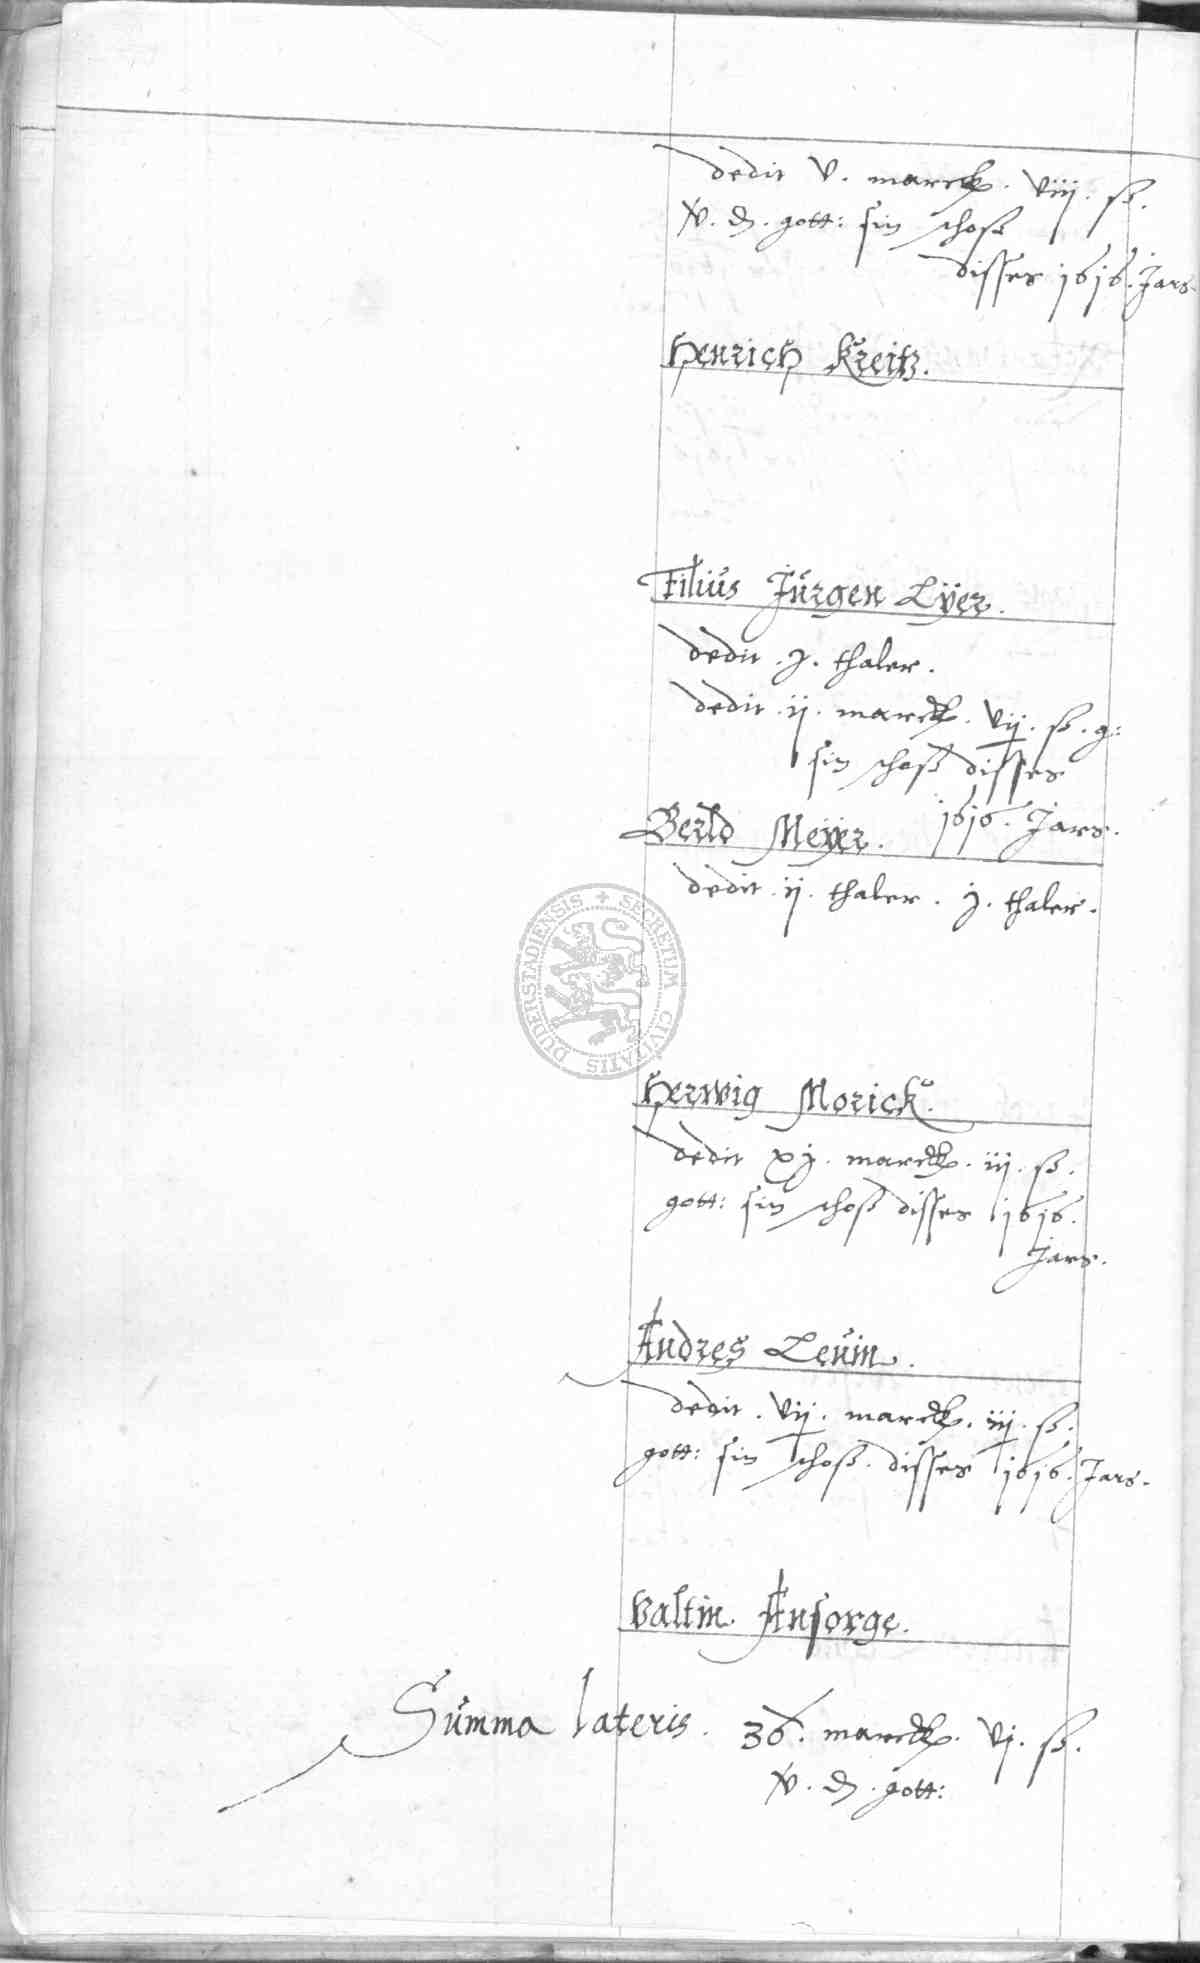 dedit v. marck. viij. ß.
v. d. gott: sin schoß
disses 1616. Jars.
Henrich Kreitz.
Filius Jürgen Lÿer.
dedit .j. thaler.
dedit .ij. marck. vij. ß. g:
sin schoß disses
1616. Jars.
Berld Meÿer.
dedit .ij. thaler. j. thaler.
DUDERSTADIENSIS + SECRETUM CIVITATIS
Herwig Morick.
dedit xj. marck. iij. ß.
gott: sin schoß disses 1616.
Jars.
Andres Leuin.
dedit. vij. marck. iij. ß.
gott: sin schoß. disses 1616. Jars.
Valtin. Ansorge.
Summa lateris. 36. marck. vj. ß.
v. d. gott: